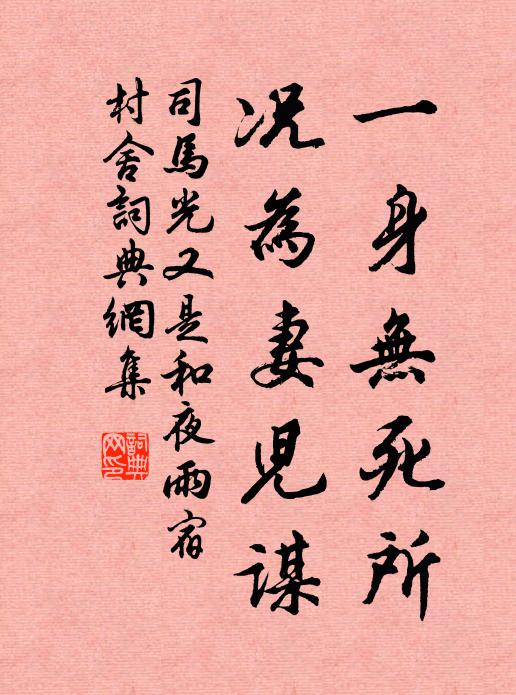 一身無死所
況為妻兒謀
司馬光又是和夜雨宿
村舍詞典網集
詞典网印